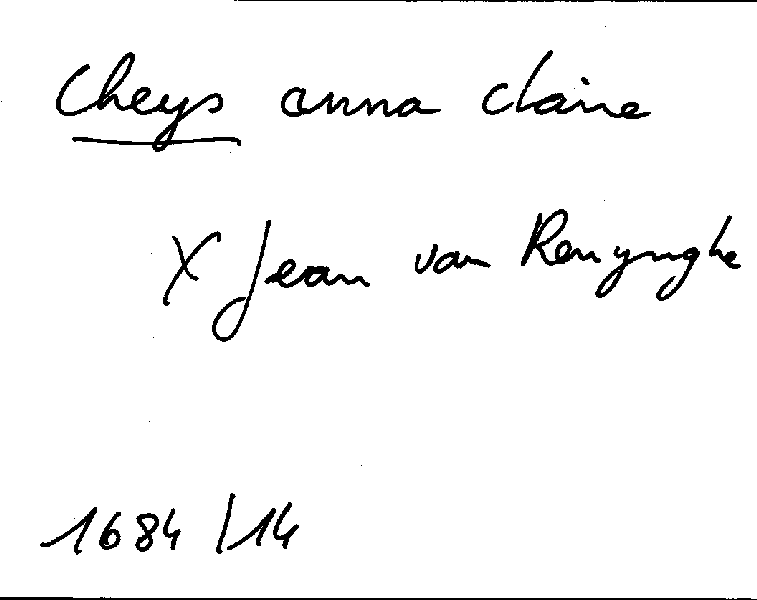 Cheys anna claire
X Jean van Renynghe
1684/14